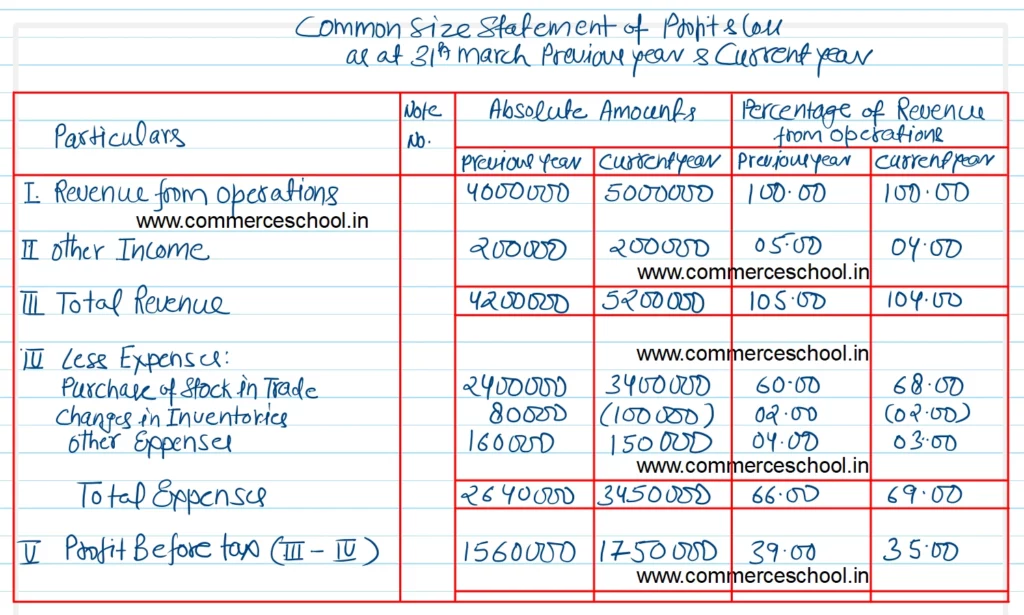 Common Size Statement of Profit & Loss
as at 31th march Previous year & Current year
Particulars Note No. Absolute Amounts Percentage of Revenue from operations
Previous year Current year Previous year Current year
I. Revenue from operations 4000000 5000000 100.00 100.00
www.commerceschool.in
II other Income 200000 200000 05.00 04.00
www.commerceschool.in
III Total Revenue 4200000 5200000 105.00 104.00
IV Less Expenses: www.commerceschool.in
Purchase of Stock in Trade 2400000 3400000 60.00 68.00
Changes in Inventories 80000 (100000) 02.00 (02.00)
other Expenses 160000 150000 04.00 03.00
www.commerceschool.in
Total Expenses 2640000 3450000 66.00 69.00
V Profit Before tax (III - IV) 1560000 1750000 39.00 35.00
www.commerceschool.in